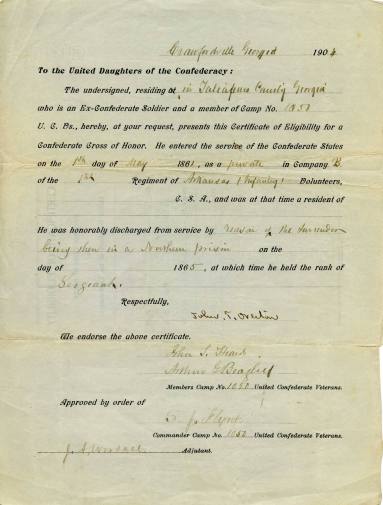 Crawfordville Georgia 1904
To the United Daughters of the Confederacy:
The undersigned, residing at in Taliaferro County Georgia
who is an Ex-Confederate Soldier and a member of Camp No. 1050
U. C. Vs., hereby, at your request, presents this Certificate of Eligibility for a
Confederate Cross of Honor. He entered the service of the Confederate States
on the 1st day of May 1861, as a private in Company B
of the 1st Regiment of Arkansas (Infantry) Volunteers,
C. S. A., and was at that time a resident of
He was honorably discharged from service by reason of the surrender
being then in a Northern prison on the
day of 1865, at which time he held the rank of
Sergeant.
Respectfully,
John T. Overton
We endorse the above certificate.
John L. Heard
Arthur
Members Camp No. 1050 United Confederate Veterans.
Approved by order of
J. Flynt
Commander Camp No. 1050 United Confederate Veterans.
J. A. Adjutant.